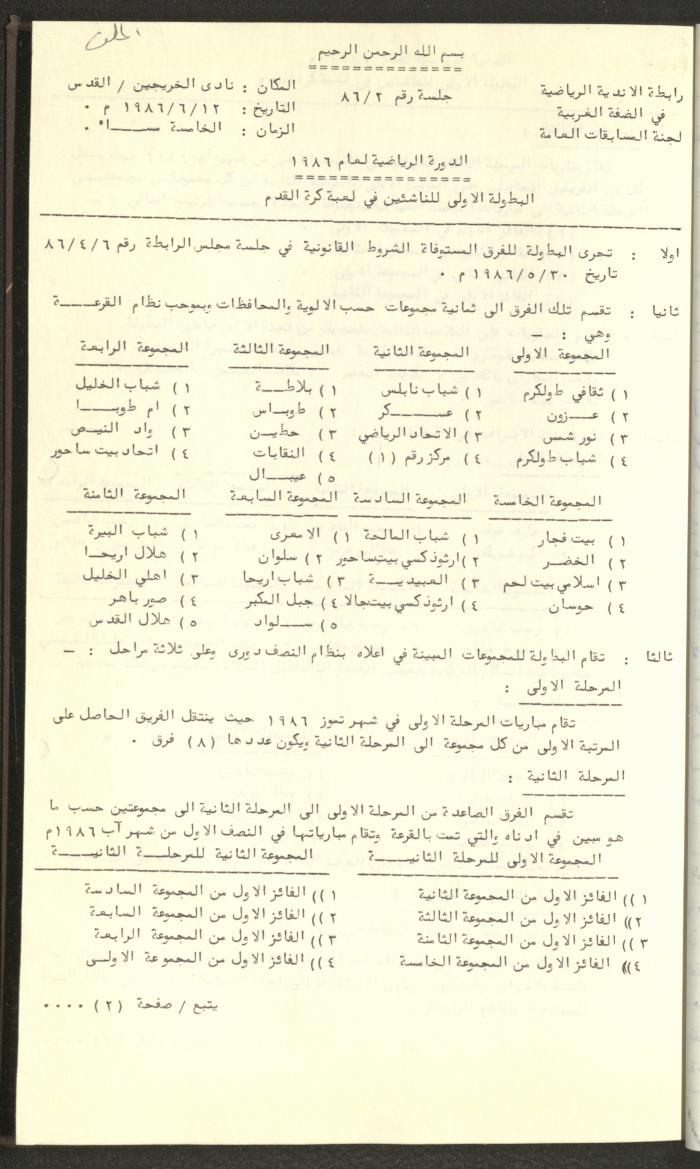 الملف
بسم الله الرحمن الرحيم
رابطة الاندية الرياضية
في الضفة الغربية
لجنة المسابقات العامة
جلسة رقم ٨٦/٢
المكان : نادى الخريجين / القدس
التاريخ : ١٩٨٦/٦/١٢ م ٠
الزمان : الخامسة مساء ٠
الدورة الرياضية لعام ١٩٨٦
البطولة الاولى للناشئين في لعبة كرة القدم
اولا : تجرى البطولة للفرق المستوفاة الشروط القانونية في جلسة مجلس الرابطة رقم ٨٦/٤/٦
تاريخ ١٩٨٦/٥/٣٠ م ٠
ثانيا : تقسم تلك الفرق الى ثمانية مجموعات حسب الالوية والمحافظات وبموجب نظام القرعة
وهي : ـ
المجموعة الاولى المجموعة الثانية المجموعة الثالثة المجموعة الرابعة
١) ثقافي طولكرم ١) شباب نابلس ١) بلاطة ١) شباب الخليل
٢) عزون ٢) عسكر ٢) طوباس ٢) ام طوبا
٣) نور شمس ٣) الاتحاد الرياضي ٣) حطين ٣) واد النيص
٤) شباب طولكرم ٤) مركز رقم (١) ٤) النقابات ٤) اتحاد بيت ساحور
٥) عيبال
المجموعة الخامسة المجموعة السادسة المجموعة السابعة المجموعة الثامنة
١) بيت فجار ١) شباب المالحة ١) الامعرى ١) شباب البيرة
٢) الخضر ٢) ارثوذكسي بيت ساحور ٢) سلوان ٢) هلال اريحا
٣) اسلامي بيت لحم ٣) العبيدية ٣) شباب اريحا ٣) اهلي الخليل
٤) حوسان ٤) ارثوذكسي بيت جالا ٤) جبل المكبر ٤) صور باهر
٥) سلواد ٥) هلال القدس
ثالثا : تقام البطولة للمجموعات المبينة في اعلاه بنظام النصف دورى وعلى ثلاثة مراحل : ـ
المرحلة الاولى :
تقام مباريات المرحلة الاولى في شهر تموز ١٩٨٦ حيث ينتقل الفريق الحاصل على
المرتبة الاولى من كل مجموعة الى المرحلة الثانية ويكون عددها (٨) فرق ٠
المرحلة الثانية :
تقسم الفرق الصاعدة من المرحلة الاولى الى المرحلة الثانية الى مجموعتين حسب ما
هو مبين في ادناه والتي تمت بالقرعة وتقام مبارياتها في النصف الاول من شهر آب ١٩٨٦م
المجموعة الاولى للمرحلة الثانية المجموعة الثانية للمرحلة الثانية
١)) الفائز الاول من المجموعة الثانية ١)) الفائز الاول من المجموعة السادسة
٢)) الفائز الاول من المجموعة الثالثة ٢)) الفائز الاول من المجموعة السابعة
٣)) الفائز الاول من المجموعة الثامنة ٣)) الفائز الاول من المجموعة الرابعة
٤)) الفائز الاول من المجموعة الخامسة ٤)) الفائز الاول من المجموعة الاولى
يتبع / صفحة (٢) ٠٠٠٠